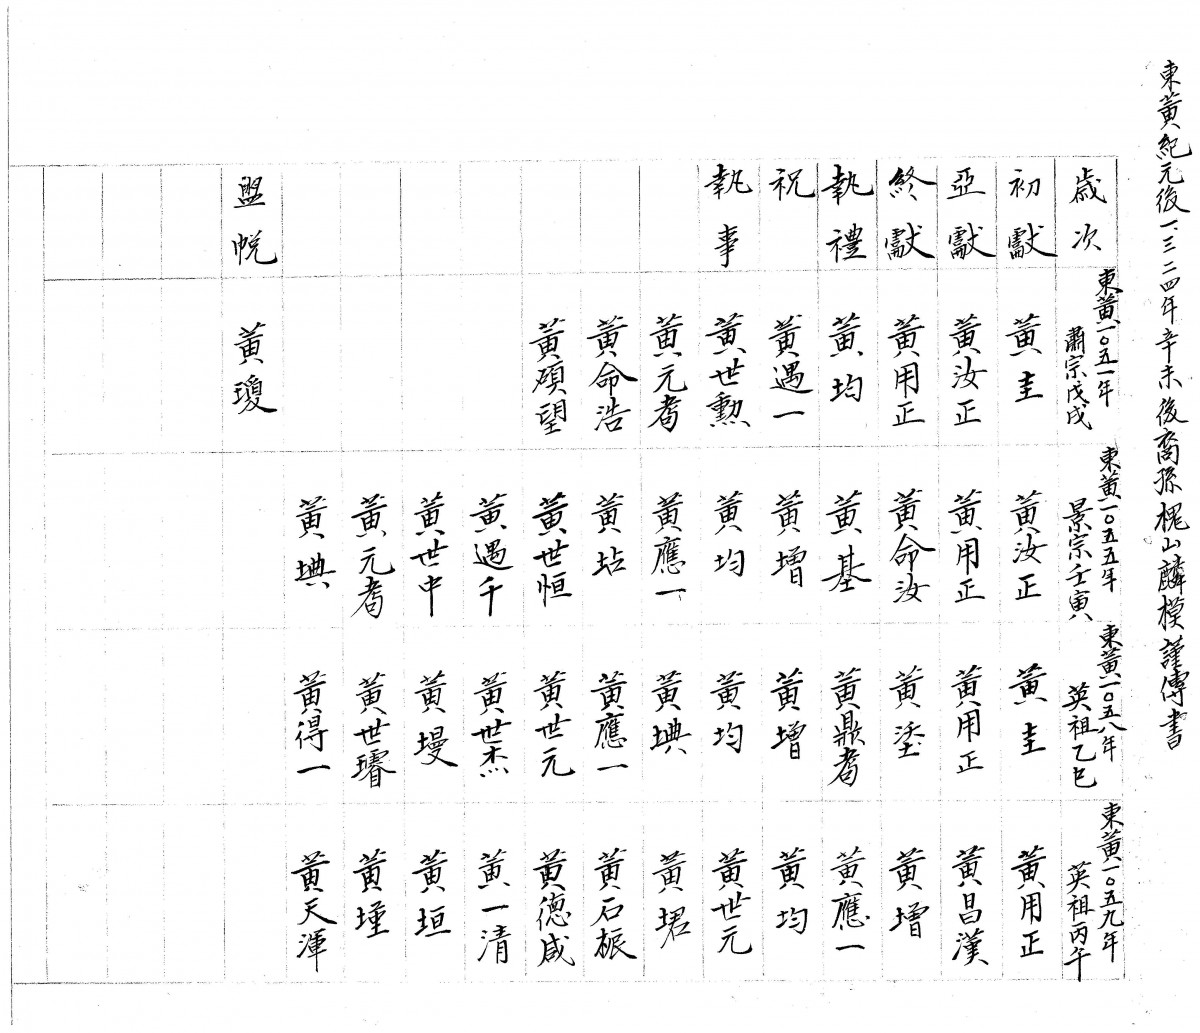 東黃紀元後一.三二四年辛未後裔孫槐山麟模謹傳書
歲次
東黃一〇五一年
肅宗戊戌
東黃一〇五五年
景宗壬寅
東黃一〇五八年
英祖乙巳
東黃一〇五九年
英祖丙午
初獻
黃圭
黃汝正
黃圭
黃用正
亞獻
黃汝正
黃用正
黃用正
黃昌漢
終獻
黃用正
黃命汝
黃塗
黃增
執禮
黃均
黃基
黃鼎耈
黃應一
祝
黃遇一
黃增
黃增
黃均
執事
黃世勲
黃均
黃均
黃世元
黃元耈
黃應一
黃㙉
黃珺
黃命浩
黃坫
黃應一
黃石振
黃碩望
黃世恒
黃世元
黃德咸
黃遇千
黃世杰
黃一清
黃世中
黃墁
黃垣
黃元耈
黃世璿
黃墐
黃㙉
黃得一
黃天渾
盥帨
黃瓊